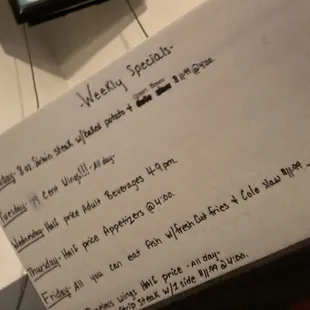 -Weekly Specials-
day- 8 oz. Sirloin Steak w/baked potato + $11.99 @4:00.
Tuesday- Cent Wings!!! - All day-
Wednesday- Half price Adult Beverages 4-9pm.
Thursday- Half price Appetizers @4:00.
Friday- All you can eat Fish w/fresh cut fries & Cole slaw $11.99
Wings Half price - All day-
Strip Steak w/1 side $11.99 @4:00.